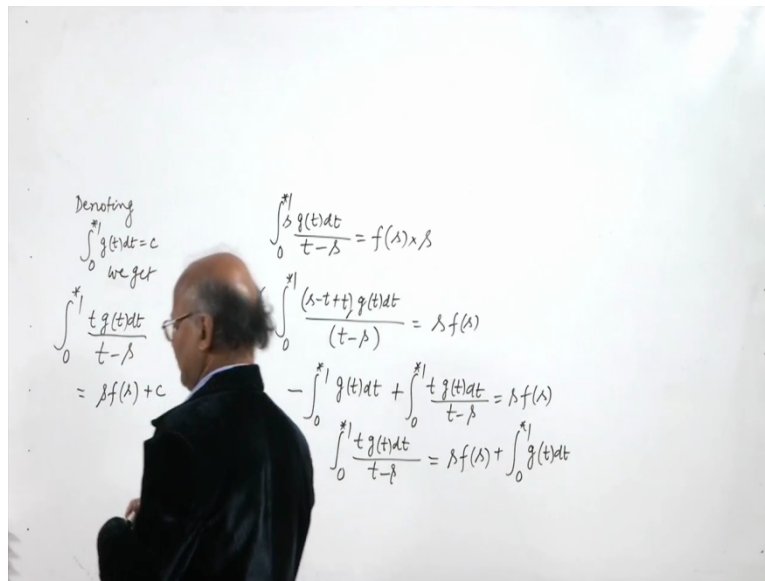 Denoting
∫₀*¹ g(t)dt = c
we get
∫₀*¹ t g(t)dt / (t-s)
= s f(s) + c
∫₀*¹ s g(t)dt / (t-s) = f(s) × s
∫₀*¹ (s-t+t) g(t)dt / (t-s) = s f(s)
- ∫₀*¹ g(t)dt + ∫₀*¹ t g(t)dt / (t-s) = s f(s)
∫₀*¹ t g(t)dt / (t-s) = s f(s) + ∫₀*¹ g(t)dt